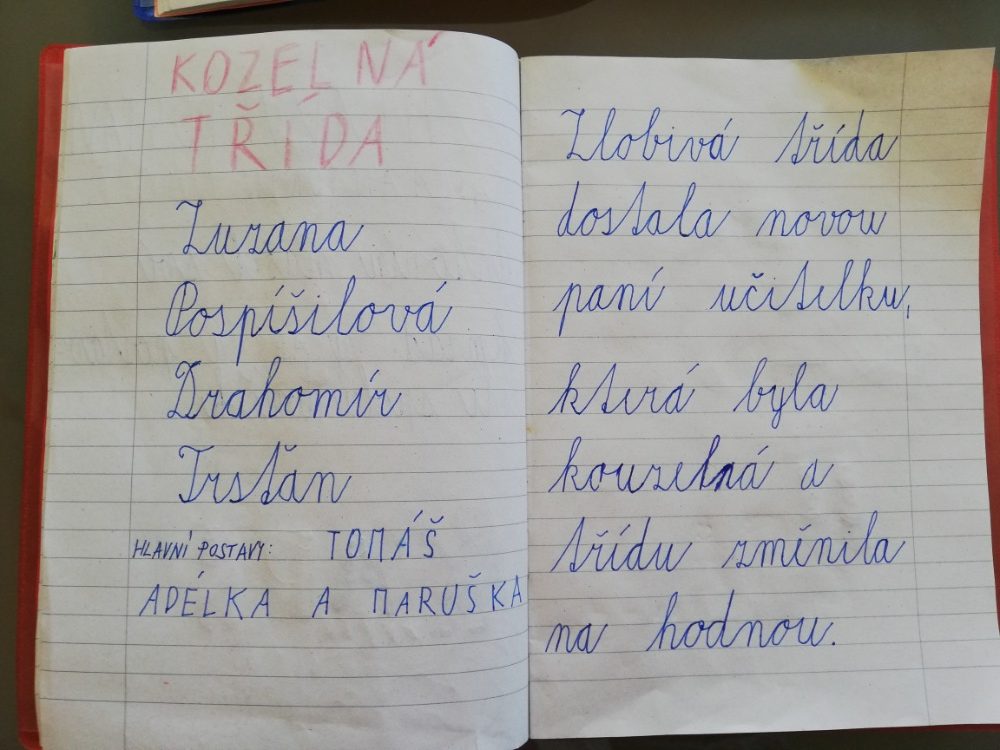 KOZELNÁ
TŘÍDA
Zuzana
Pospíšilová
Drahomír
Trsťan
HLAVNÍ POSTAVY: TOMÁŠ
ADÉLKA A MARUŠKA
Zlobivá třída
dostala novou
paní učitelku,
která byla
kouzelná a
třídu změnila
na hodnou.